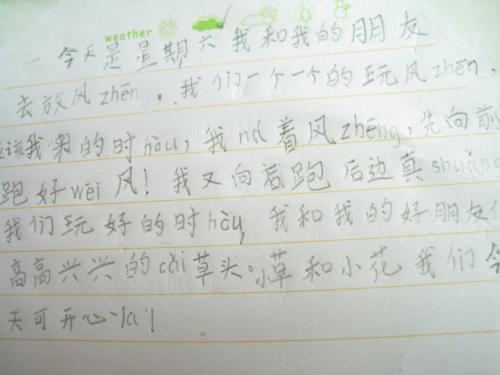 weather
一今天是星期六我和我的朋友
去放风zhēn,我们一个一个的玩风zhēn.
应该我来的时hòu,我ná着风zhēng,先向前
跑好wēi风!我又向后跑后边真shuǎng
我们玩好的时hòu,我和我的好朋友们
高高兴兴的cǎi草头。小草和小花我们今
天可开心la!